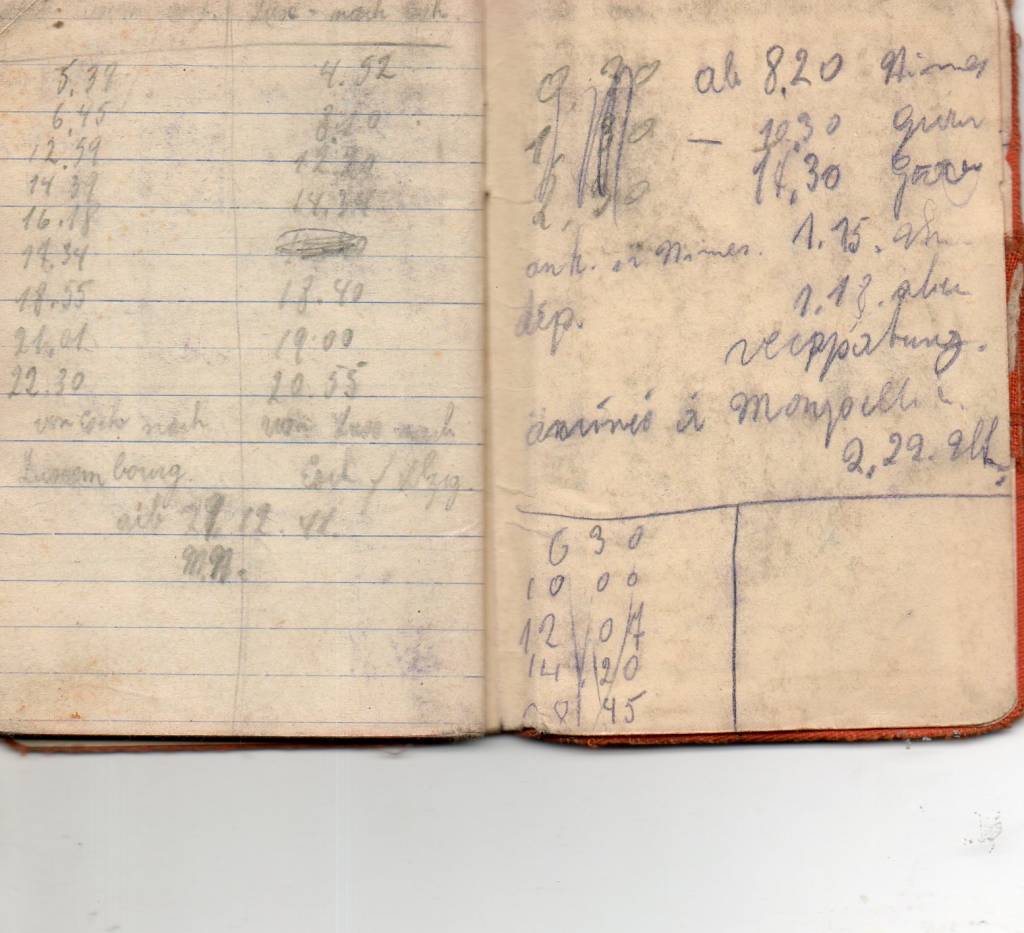 Lux - nach Esch.
5.39 4.52
6.45 8.20
12.59 12.20
14 39 14.34
16.18
17.34
18.55 18.40
21.01 19.00
22.30 20.55
von Esch nach von Lux nach
Luxembourg. Esch / Alzig.
ab 29 12. 41.
M.N.
9. 30 ab 8.20 Nimes
1, 30 — 10,30
2, 30 14,30
ank. à Nimes. 1.15.
dép. 1.18.
verspätung.
à Montpellier
2.29.
6 30
10 00
12 07
14.20
45